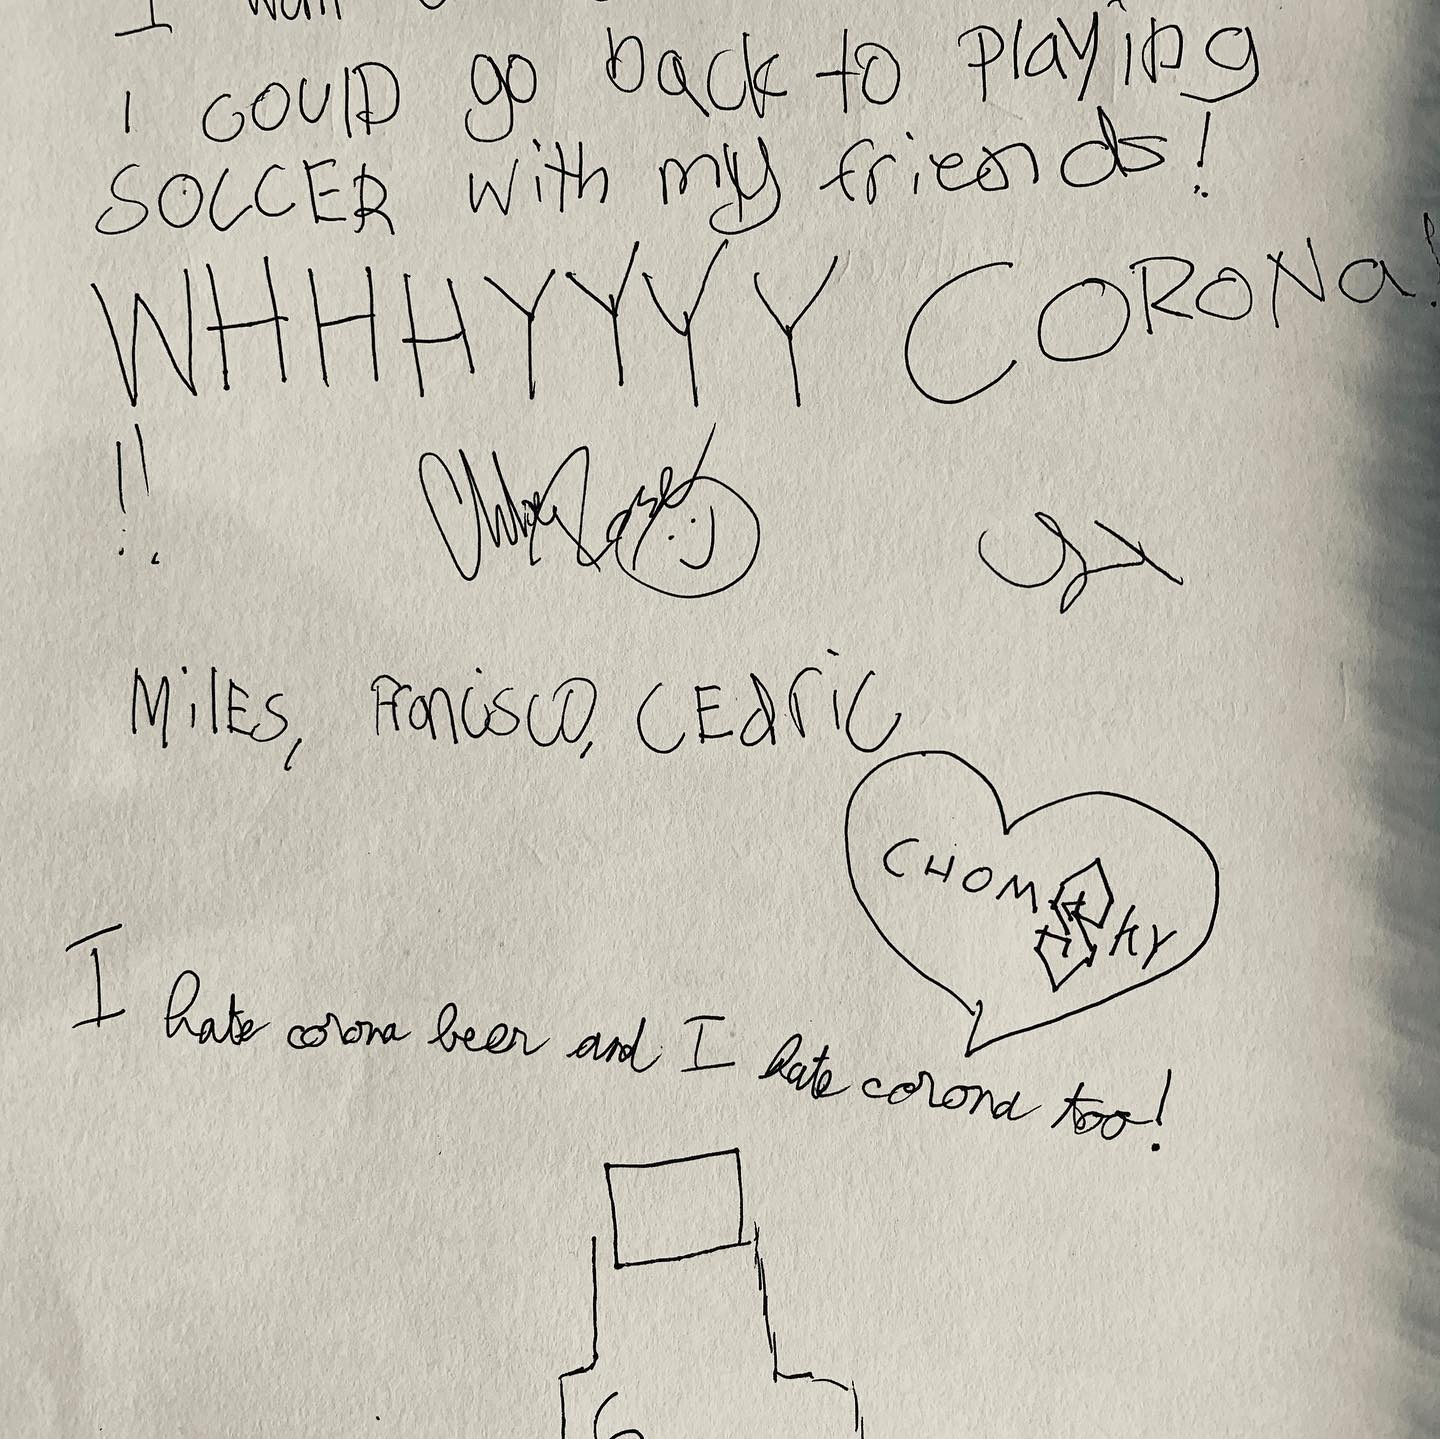 I
i COULD go back to playing
SOCCER with my friends!
WHHHYYYY CORONa!
!!
Miles, Francisco, CEdric
CHOM
KY
I hate corona beer and I hate corona too!